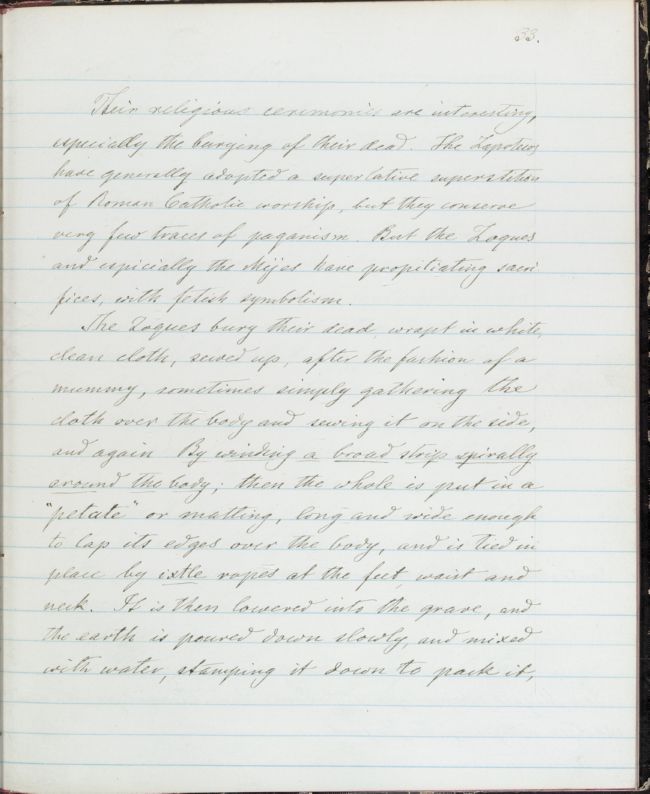 33.
Their religious ceremonies are interesting,
especially the burying of their dead. The Zapotecs
have generally adopted a superlative superstition
of Roman Catholic worship, but they conserve
very few traces of paganism. But the Zoques
and especially the Mijes have propitiating sacri
fices, with fetish symbolism.
The Zoques bury their dead, wrapt in white,
clean cloth, sewed up, after the fashion of a
mummy, sometimes simply gathering the
cloth over the body and sewing it on the side,
and again By winding a broad strip spirally
around the body; then the whole is put in a
"petate" or matting, long and wide enough
to lap its edges over the body, and is tied in
place by ixtle ropes at the feet, waist and
neck. It is then lowered into the grave, and
the earth is poured down slowly, and mixed
with water, stamping it down to pack it,